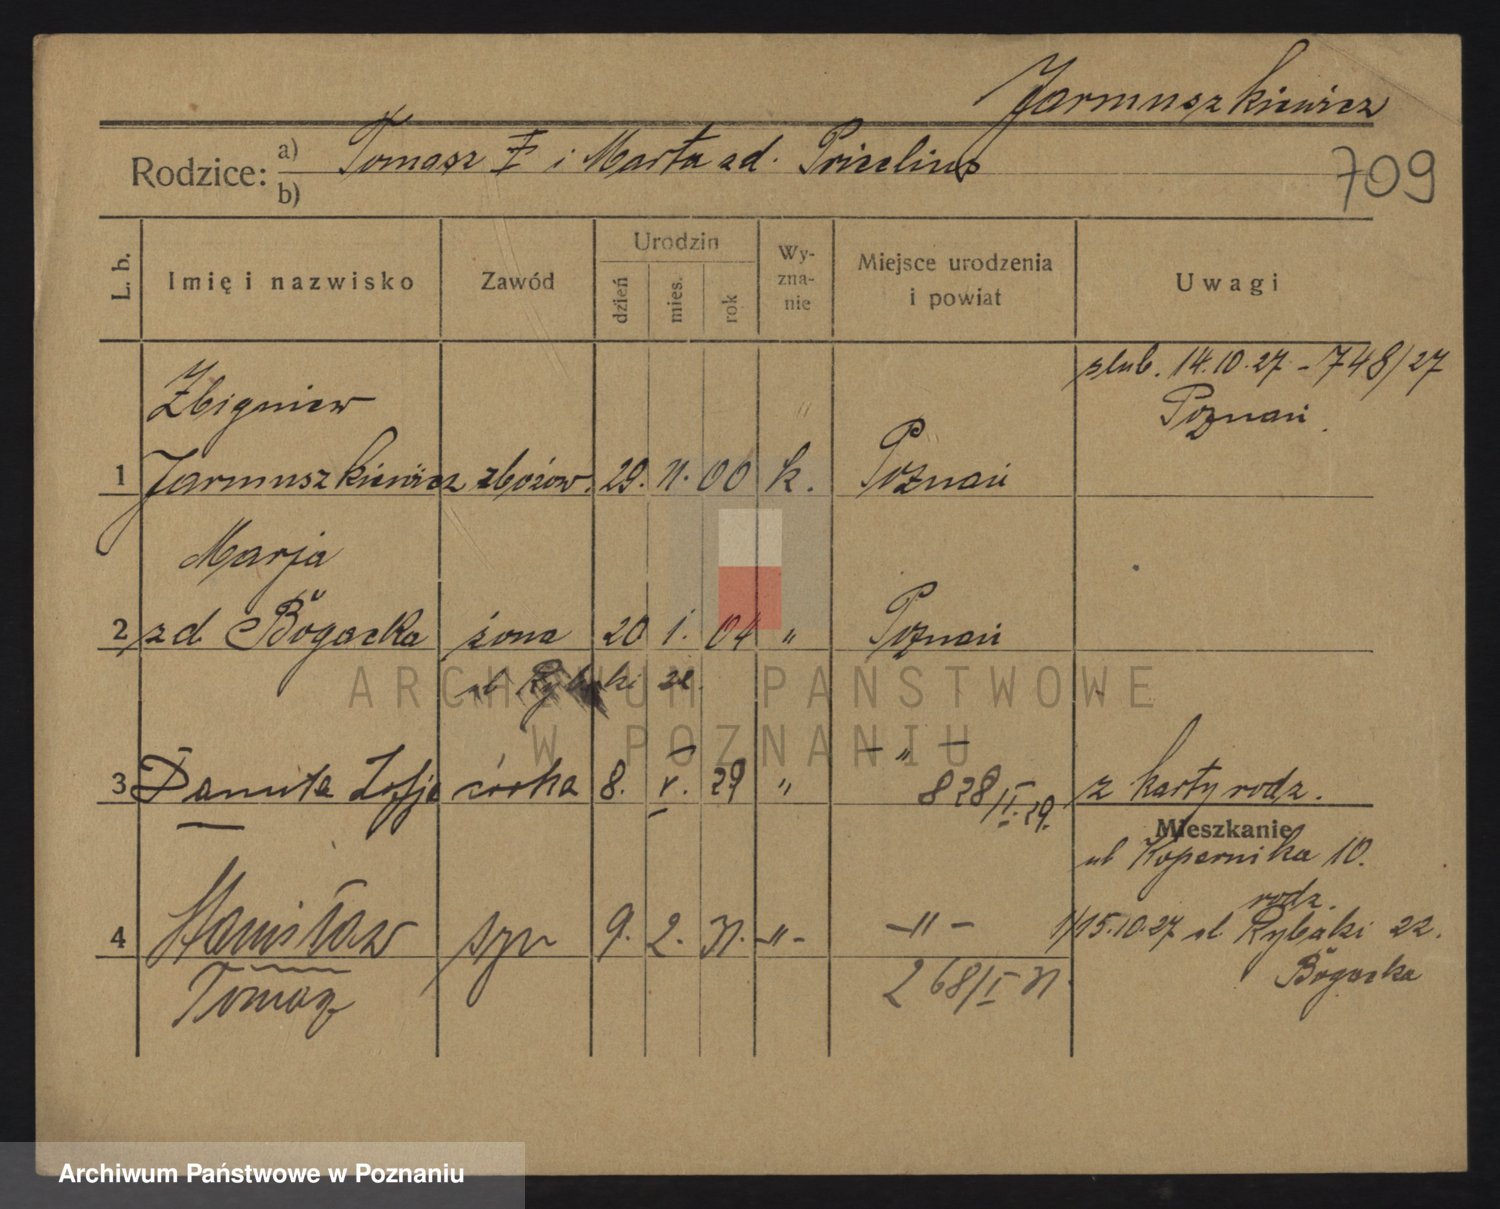 Jarmuszkiewicz
Rodzice: a) Tomasz i Marta zd. Prizelius
b)
709
L. b. Imię i nazwisko Zawód Urodzin dzień mies. rok Wy-zna-nie Miejsce urodzenia i powiat Uwagi
ślub. 14.10.27 - 748/27
Poznań
Zbigniew
1 Jarmuszkiewicz zbożow. 29. 11. 00 k. Poznań
Marja
2 zd Bögacka żona 20 1. 04 " Poznań
ul Rybaki 22.
3 Danuta Zofja córka 8. V. 29 " - " - z karty rodz.
828/II.29.
Mieszkanie
ul Kopernika 10.
rodz.
4 Stanisław syn 9. 2. 31. -"- -"- 1/15.10.27 ul. Rybaki 22.
Tomasz 268/I 31. Bögacka
ARCHIWUM PAŃSTWOWE
W POZNANIU
Archiwum Państwowe w Poznaniu